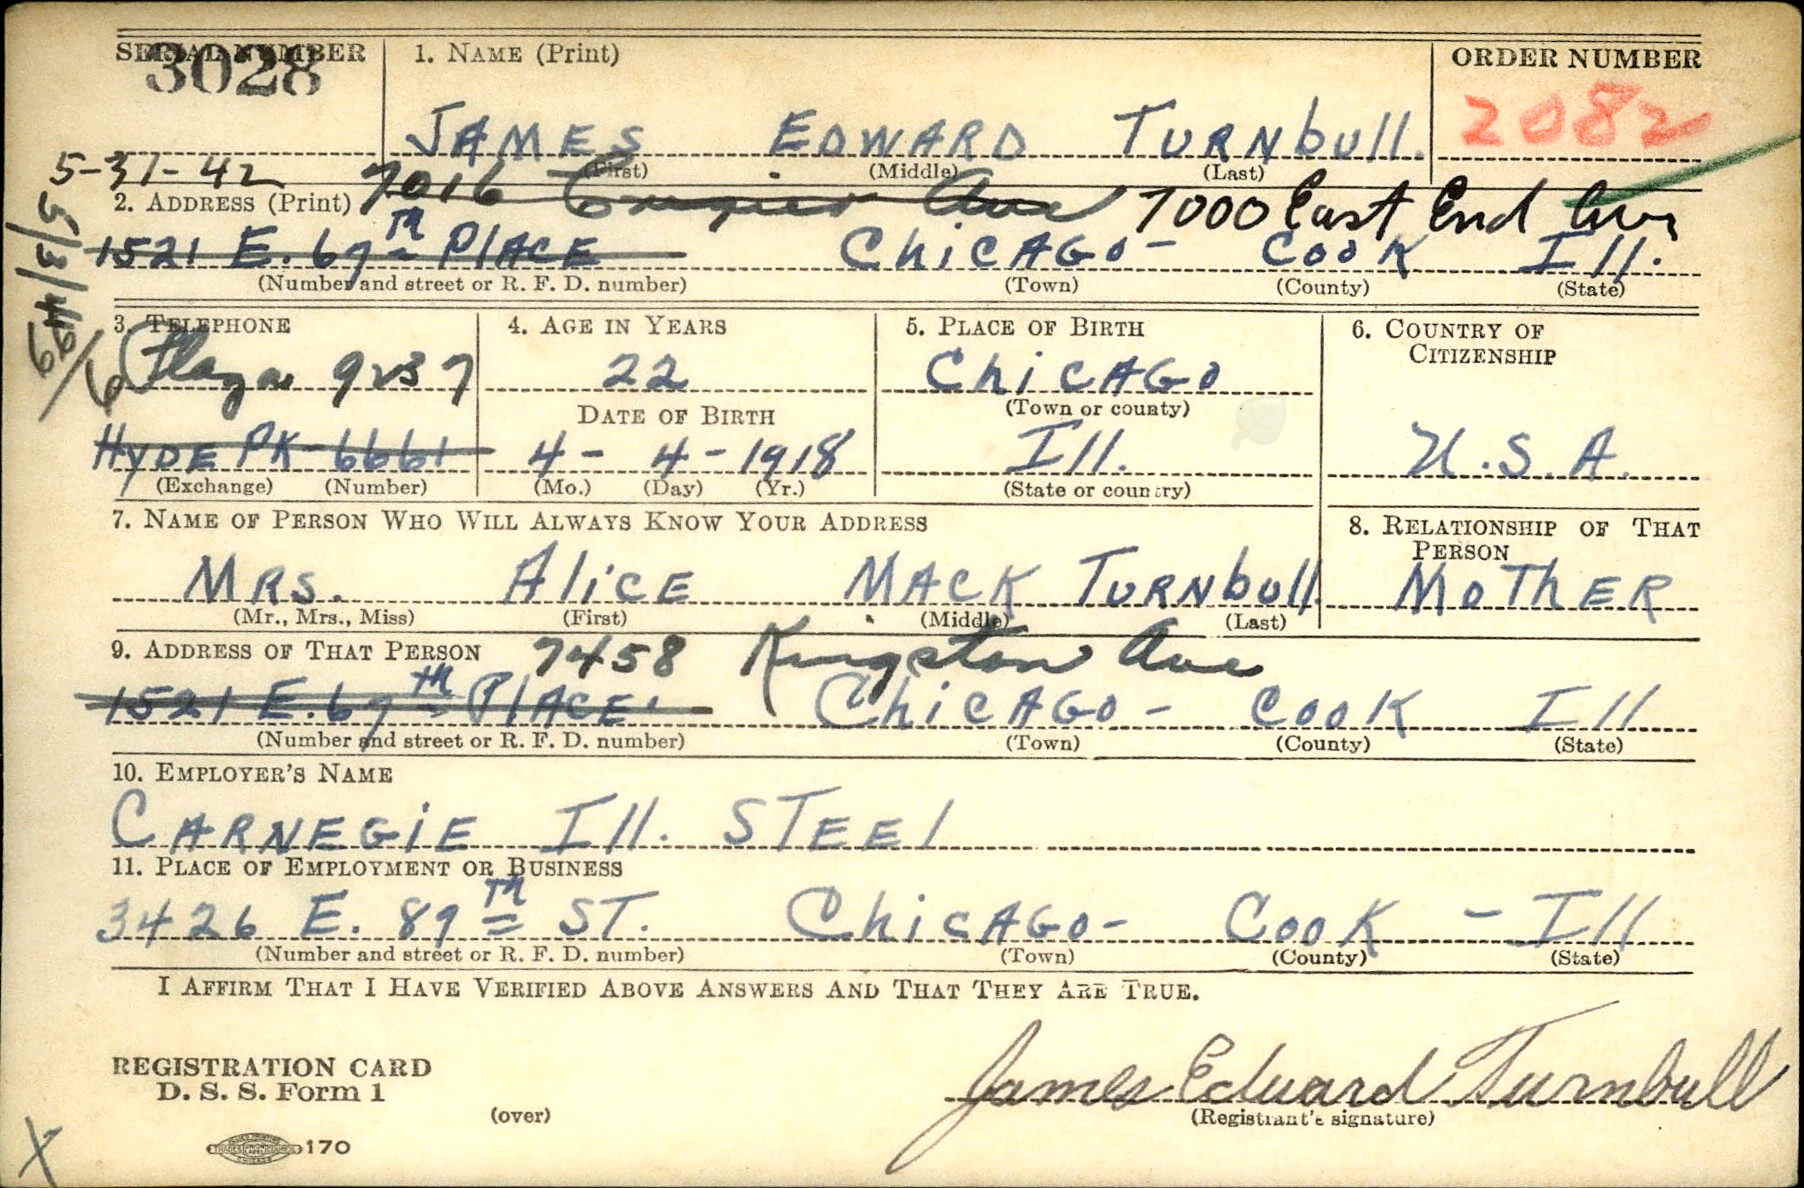 SERIAL NUMBER
3028
1. NAME (Print)
ORDER NUMBER
JAMES EDWARD TURNbull.
2082
(First) (Middle) (Last)
5-31-42
7016 Cregier Ave 7000 East End Ave
2. ADDRESS (Print)
1521 E. 67th PlACE ChiCAGO - COOK Ill.
(Number and street or R. F. D. number) (Town) (County) (State)
3. TELEPHONE
4. AGE IN YEARS
5. PLACE OF BIRTH
6. COUNTRY OF
CITIZENSHIP
Plaza 9237
22
ChiCAGO
(Town or county)
DATE OF BIRTH
HYDE PK-6661
4 - 4 - 1918
Ill.
U.S.A.
(Exchange) (Number)
(Mo.) (Day) (Yr.)
(State or country)
7. NAME OF PERSON WHO WILL ALWAYS KNOW YOUR ADDRESS
8. RELATIONSHIP OF THAT
PERSON
MRS. AliCE MACK TURNbull
MOThER
(Mr., Mrs., Miss) (First) (Middle) (Last)
9. ADDRESS OF THAT PERSON
7458 Kingston Ave
1521 E. 67th PlACE ChiCAGO - COOK Ill
(Number and street or R. F. D. number) (Town) (County) (State)
10. EMPLOYER'S NAME
CARNEGiE Ill. STEEl
11. PLACE OF EMPLOYMENT OR BUSINESS
3426 E. 89th ST. ChicAGO - COOK - Ill
(Number and street or R. F. D. number) (Town) (County) (State)
I AFFIRM THAT I HAVE VERIFIED ABOVE ANSWERS AND THAT THEY ARE TRUE.
REGISTRATION CARD
D. S. S. Form 1
(over)
James Edward Turnbull
(Registrant's signature)
170
X